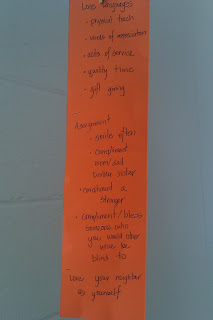 Love languages
• physical touch
• words of association
• acts of service
• quality time
• gift giving
Assignment
• smile often
• compliment
mom/dad
brother sister
• compliment a
stranger
• compliment/bless
someone who
you would other
wise be
blind to
Love your neighbor
as yourself